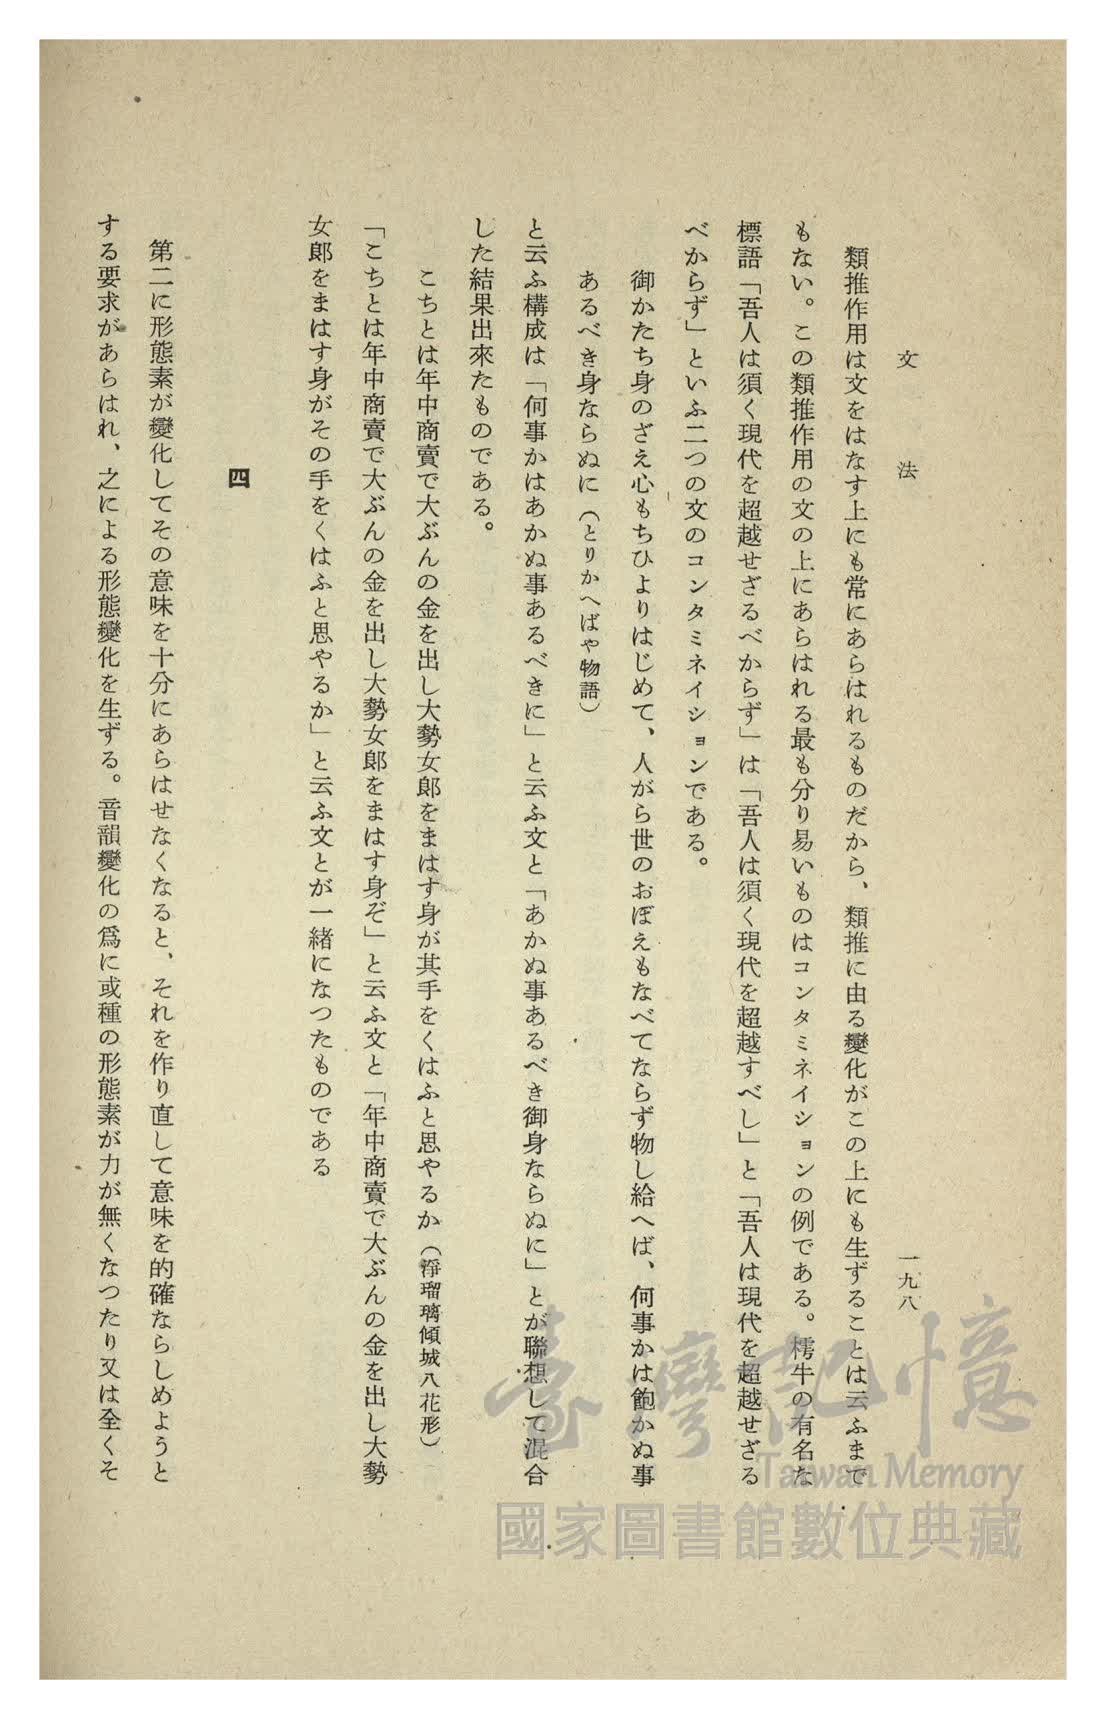 文法
一九八
類推作用は文をはなす上にも常にあらはれるものだから、類推に由る變化がこの上にも生ずることは云ふまで
もない。この類推作用の文の上にあらはれる最も分り易いものはコンタミネイションの例である。樗牛の有名な
標語「吾人は須く現代を超越せざるべからず」は「吾人は須く現代を超越すべし」と「吾人は現代を超越せざる
べからず」といふ二つの文のコンタミネイションである。
御かたち身のざえ心もちひよりはじめて、人がら世のおぼえもなべてならず物し給へば、何事かは飽かぬ事
あるべき身ならぬに（とりかへばや物語）
と云ふ構成は「何事かはあかぬ事あるべきに」と云ふ文と「あかぬ事あるべき御身ならぬに」とが聯想して混合
した結果出來たものである。
こちとは年中商賣で大ぶんの金を出し大勢女郎をまはす身が其手をくはふと思やるか（淨瑠璃傾城八花形）
「こちとは年中商賣で大ぶんの金を出し大勢女郎をまはす身ぞ」と云ふ文と「年中商賣で大ぶんの金を出し大勢
女郎をまはす身がその手をくはふと思やるか」と云ふ文とが一緒になつたものである
四
第二に形態素が變化してその意味を十分にあらはせなくなると、それを作り直して意味を的確ならしめようと
する要求があらはれ、之による形態變化を生ずる。音韻變化の爲に或種の形態素が力が無くなつたり又は全くそ
臺灣記憶
Taiwan Memory
國家圖書館數位典藏